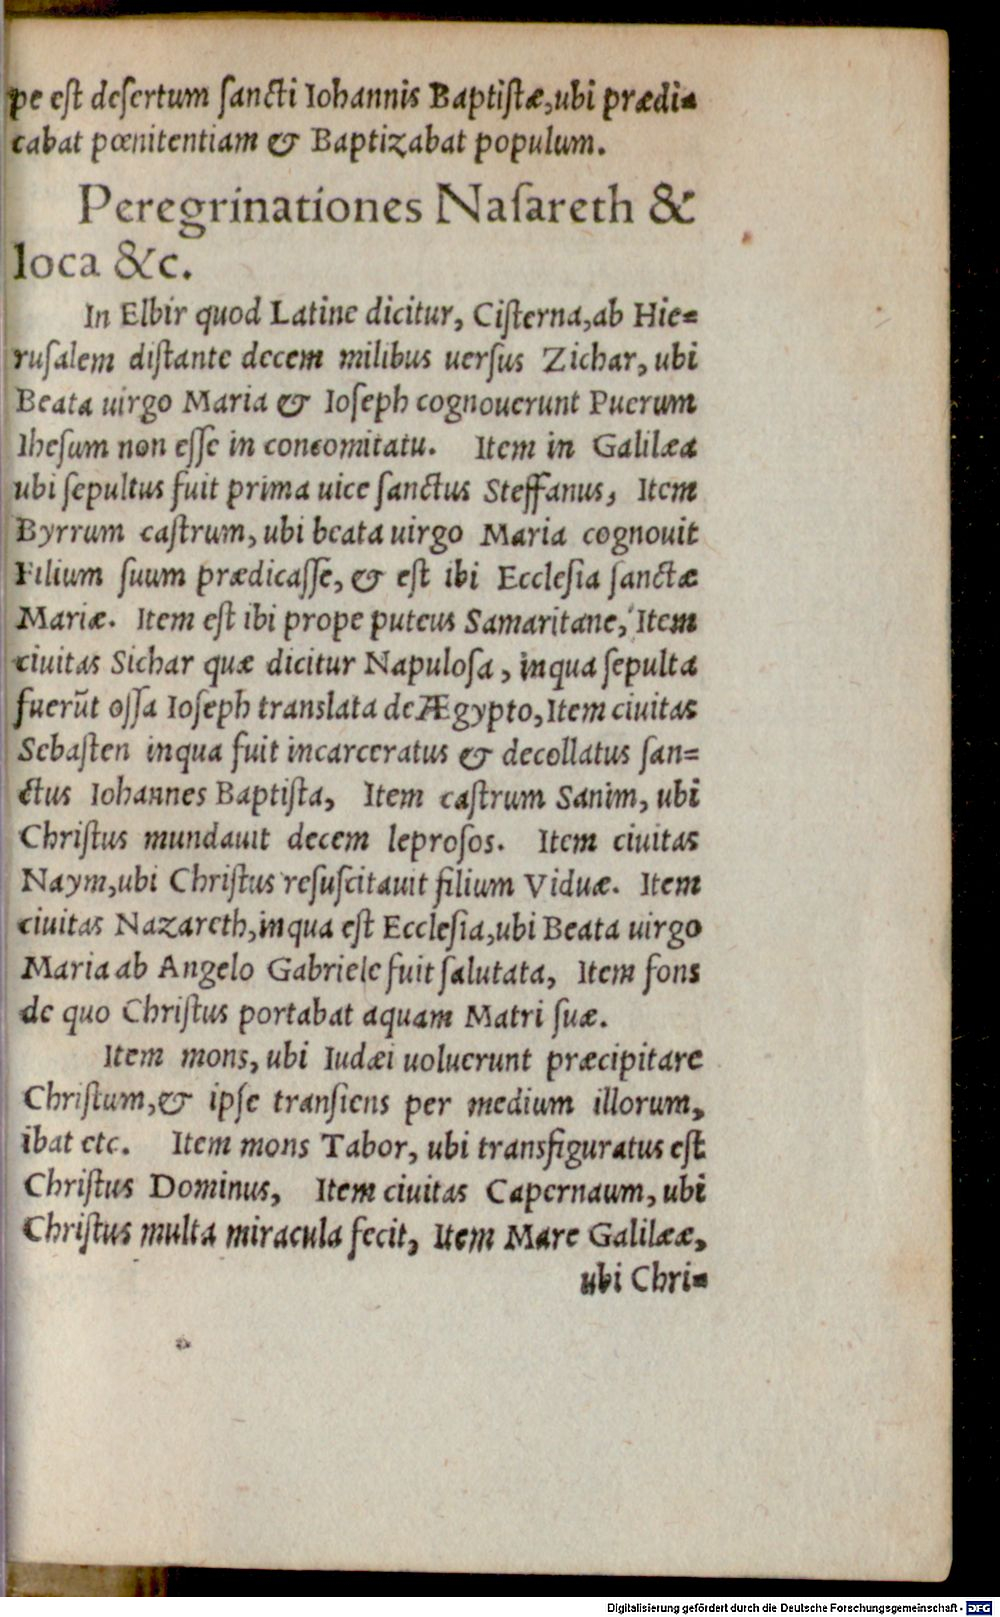 pe est desertum sancti Iohannis Baptistæ, ubi prædi=
cabat pœnitentiam & Baptizabat populum.
Peregrinationes Nasareth &
loca &c.
In Elbir quod Latine dicitur, Cisterna, ab Hie=
rusalem distante decem milibus uersus Zichar, ubi
Beata uirgo Maria & Ioseph cognouerunt Puerum
Ihesum non esse in concomitatu. Item in Galilæa
ubi sepultus fuit prima uice sanctus Steffanus, Item
Byrrum castrum, ubi beata uirgo Maria cognouit
Filium suum prædicasse, & est ibi Ecclesia sanctæ
Mariæ. Item est ibi prope puteus Samaritane, Item
ciuitas Sichar quæ dicitur Napulosa, inqua sepulta
fuerũt ossa Ioseph translata de Ægypto, Item ciuitas
Sebasten inqua fuit incarceratus & decollatus san=
ctus Iohannes Baptista, Item castrum Sanim, ubi
Christus mundauit decem leprosos. Item ciuitas
Naym, ubi Christus resuscitauit filium Viduæ. Item
ciuitas Nazareth, inqua est Ecclesia, ubi Beata uirgo
Maria ab Angelo Gabriele fuit salutata, Item fons
de quo Christus portabat aquam Matri suæ.
Item mons, ubi Iudæi uoluerunt præcipitare
Christum, & ipse transiens per medium illorum,
ibat etc. Item mons Tabor, ubi transfiguratus est
Christus Dominus, Item ciuitas Capernaum, ubi
Christus multa miracula fecit, Item Mare Galilææ,
ubi Chri=
Digitalisierung gefördert durch die Deutsche Forschungsgemeinschaft - DFG